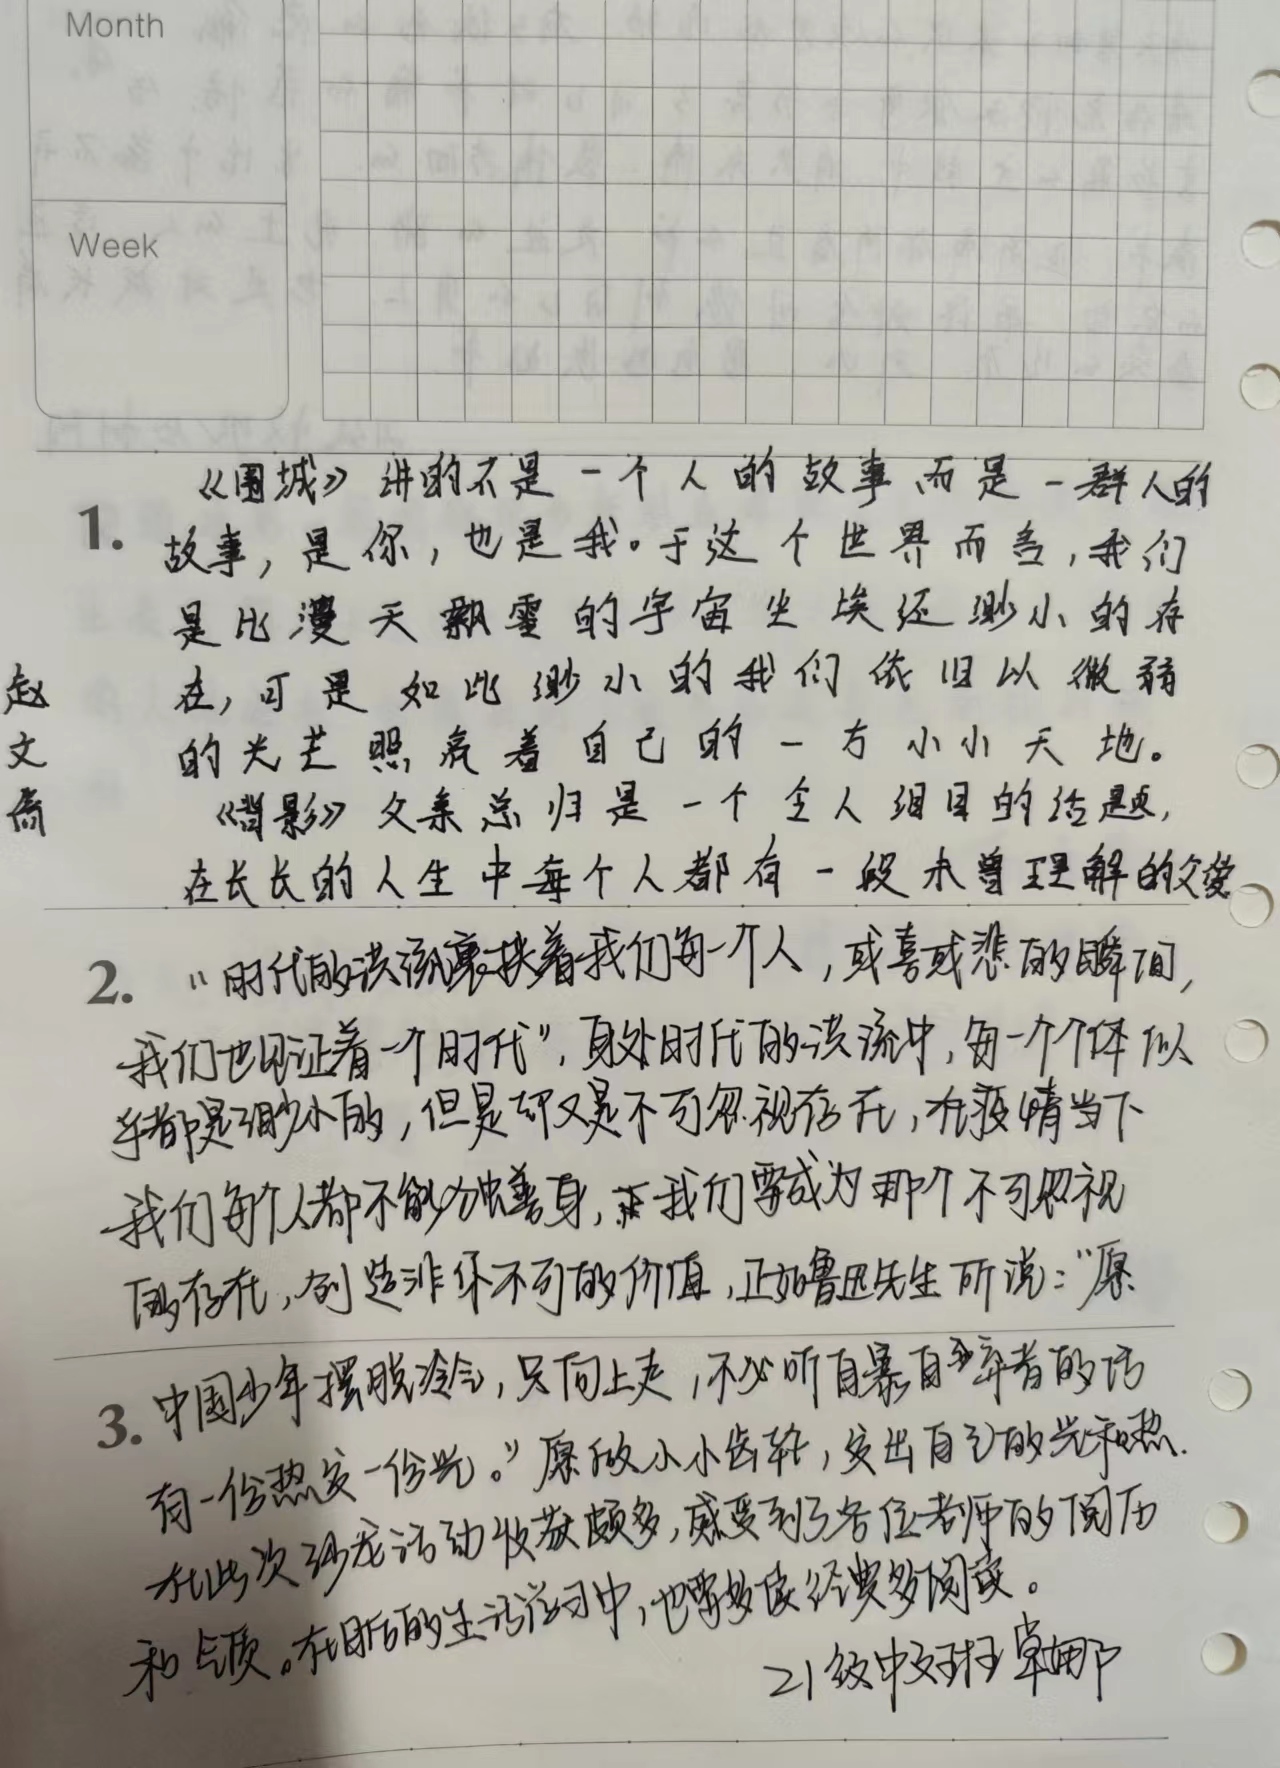 Month
Week
《围城》讲的不是一个人的故事而是一群人的
1. 故事，是你，也是我。于这个世界而言，我们
是比漫天飘雪的宇宙尘埃还渺小的存
在，可是如此渺小的我们依旧以微弱
的光芒照亮着自己的一方小小天地。
《背影》父亲总归是一个令人泪目的话题，
在长长的人生中每个人都有一段未曾理解的父爱
赵
文
2. "时代的洪流裹挟着我们每一个人，或喜或悲的瞬间，
我们也见证着一个时代"，身处时代的洪流中，每一个个体似
乎都是渺小的，但是却又是不可忽视存在，在疫情当下
我们每个人都不能独善身，我们要成为那个不可忽视
的存在，创造非你不可的价值，正如鲁迅先生所说："愿
3. 中国少年摆脱冷气，只向上走，不必听自暴自弃者的话
有一份热发一份光。"愿做小小齿轮，发出自己的光和热.
在此次沙龙活动收获颇多，感受到了各位老师的阅历
和气质。在日后的生活学习中，也要多读经典多阅读。
21级中文班 覃娜